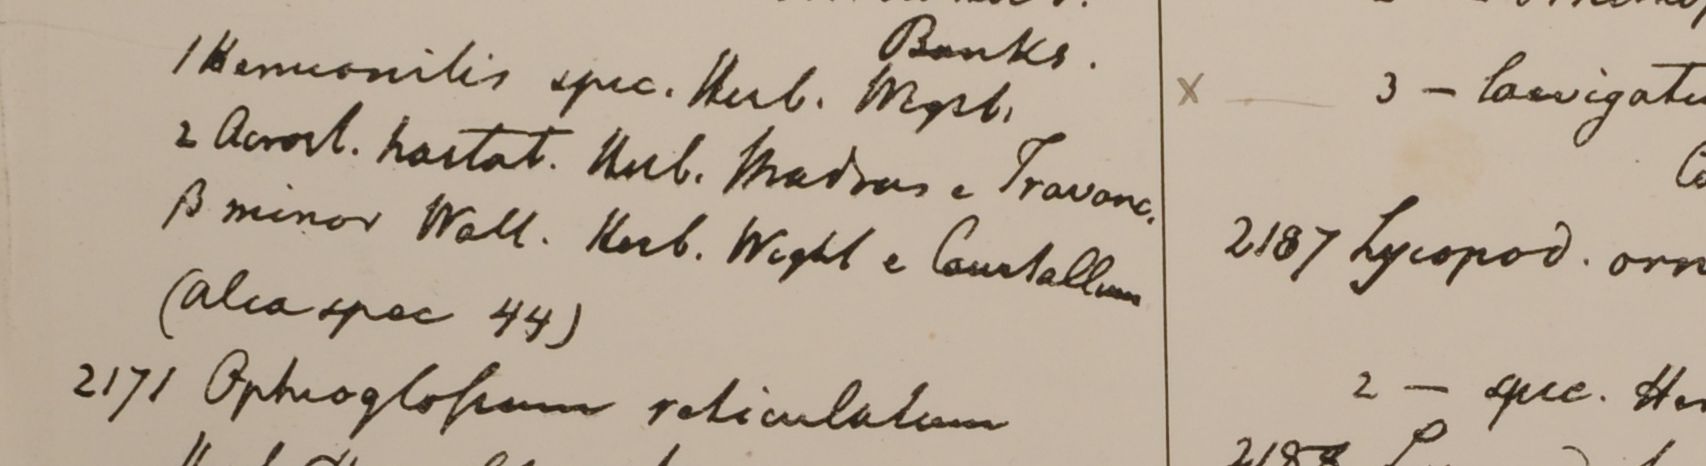 Banks.
1 Hemionitis spec. Herb. Wight.
2 Acrost. hastat. Herb. Madras e Travanc.
β minor Wall. Herb. Wight e Courtallum
(alia spec 44)
2171 Ophioglossum reticulatum
3 — laevigatu
2187 Lycopod. orn
2 — spec. Her
2188